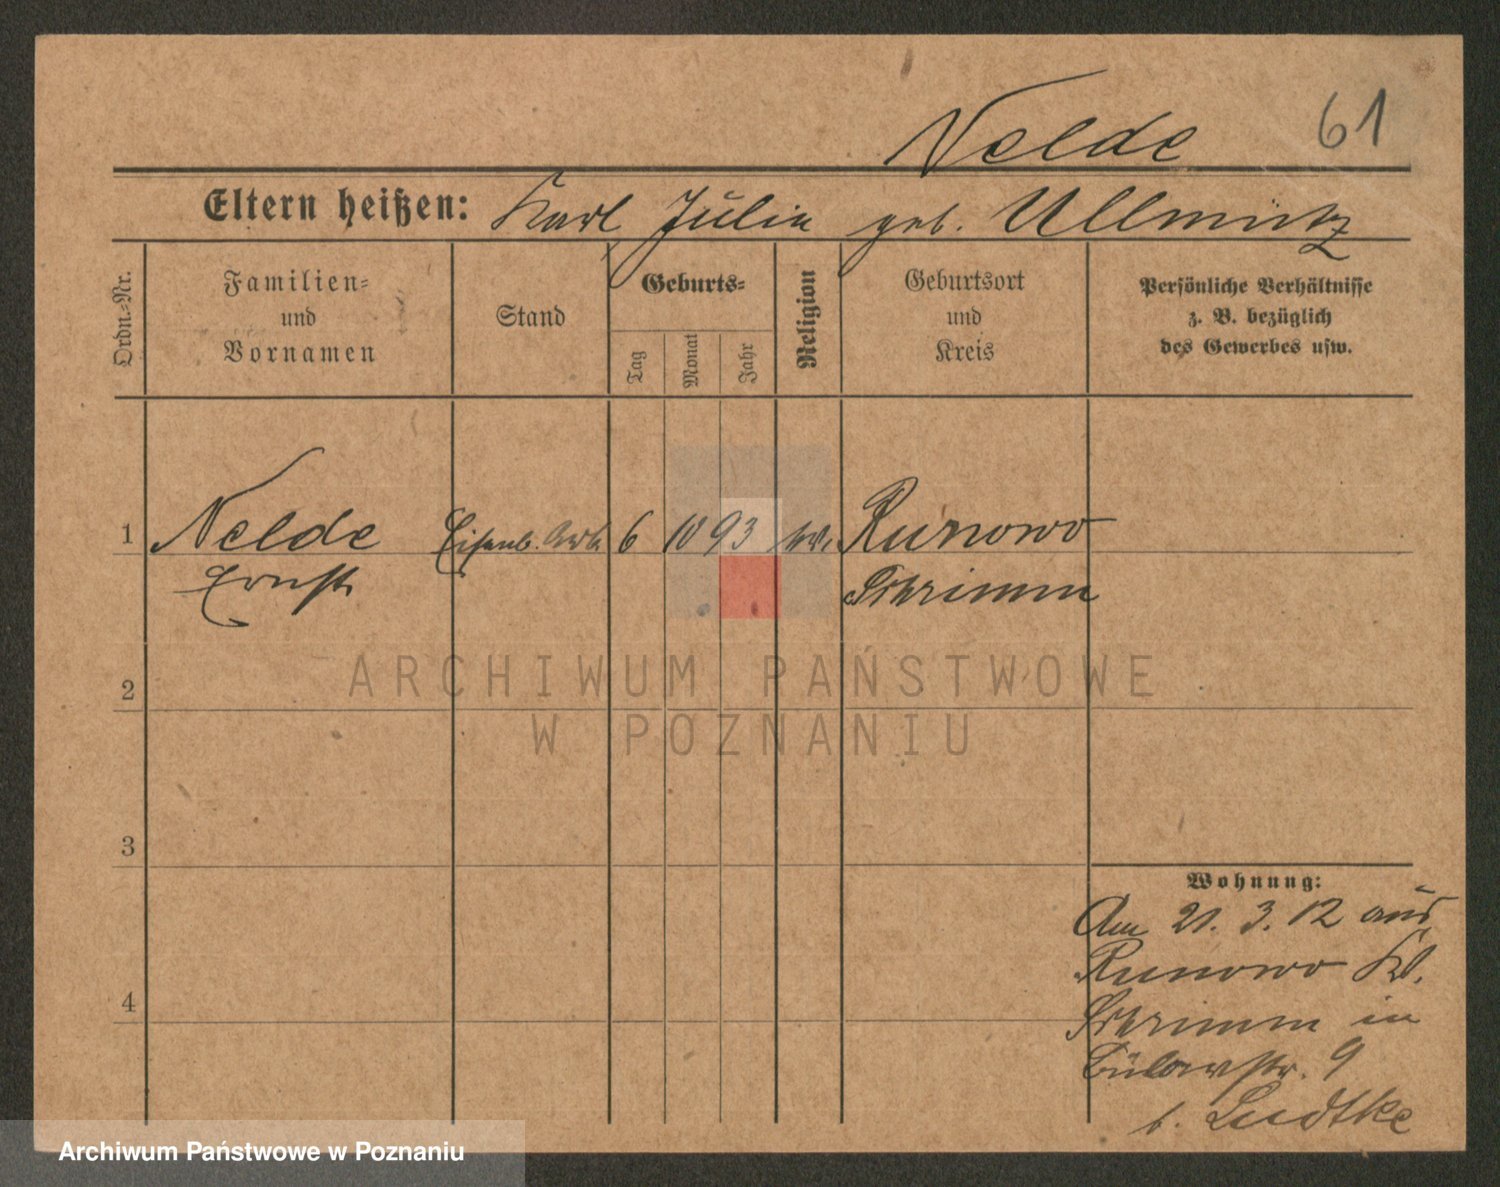 Nelde 61
Eltern heißen: Karl Julia geb. Ullmütz
Ordn.-Nr.
Familien-
und
Vornamen
Stand
Geburts-
Tag
Monat
Jahr
Religion
Geburtsort
und
Kreis
Persönliche Verhältnisse
z. B. bezüglich
des Gewerbes usw.
1 Nelde Eisenb. Arb. 6 10 93 ev. Runowo
Ernst Schrimm
2
3
4
Wohnung:
Am 21. 3. 12 aus
Runowo Kr.
Schrimm in
Bülowstr. 9
b. Ludtke
ARCHIWUM PAŃSTWOWE
W POZNANIU
Archiwum Państwowe w Poznaniu